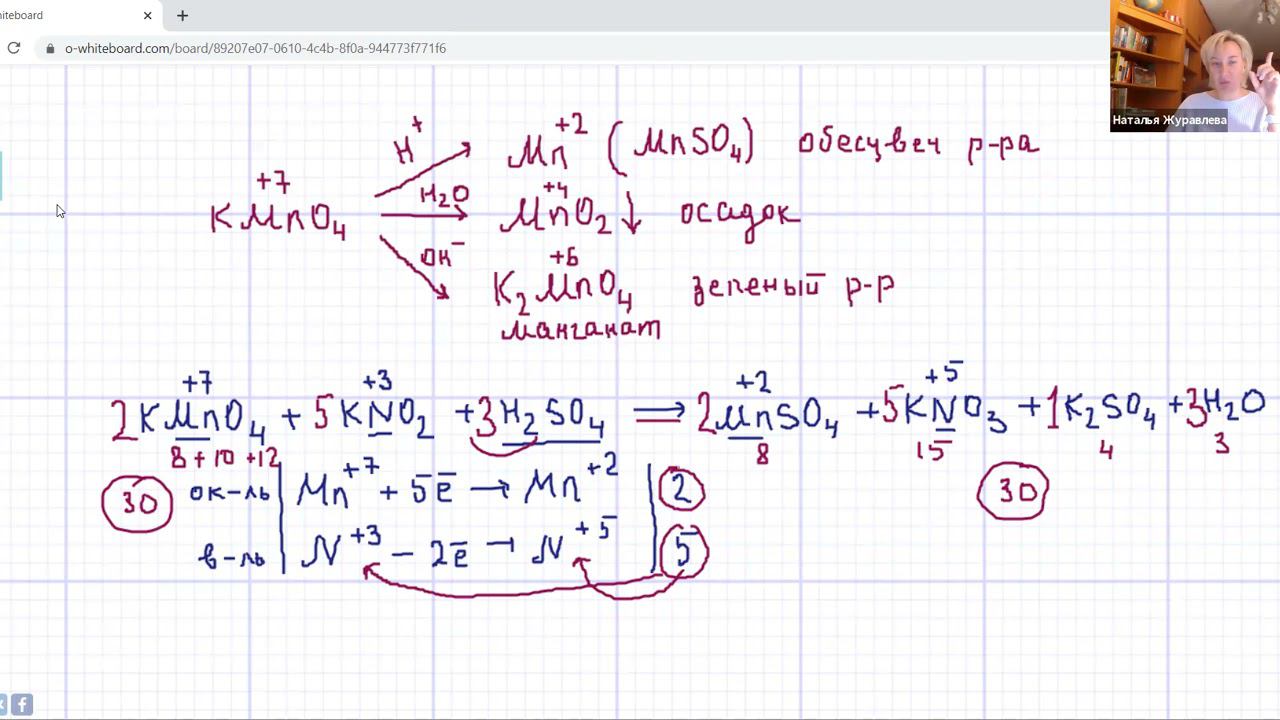 hiteboard
o-whiteboard.com/board/89207e07-0610-4c4b-8f0a-944773f771f6
Наталья Журавлева
H⁺ Mn⁺² (MnSO₄) обесцвеч р-ра
+7 H₂O +4
KMnO₄ MnO₂↓ осадок
OH⁻ +6
K₂MnO₄ зеленый р-р
манганат
+7 +3 +2 +5
2KMnO₄ + 5KNO₂ + 3H₂SO₄ ⟹ 2MnSO₄ + 5KNO₃ + 1K₂SO₄ + 3H₂O
8 + 10 + 12 8 15 4 3
30 ок-ль | Mn⁺⁷ + 5ē → Mn⁺² | 2 30
в-ль | N⁺³ − 2ē → N⁺⁵ | 5